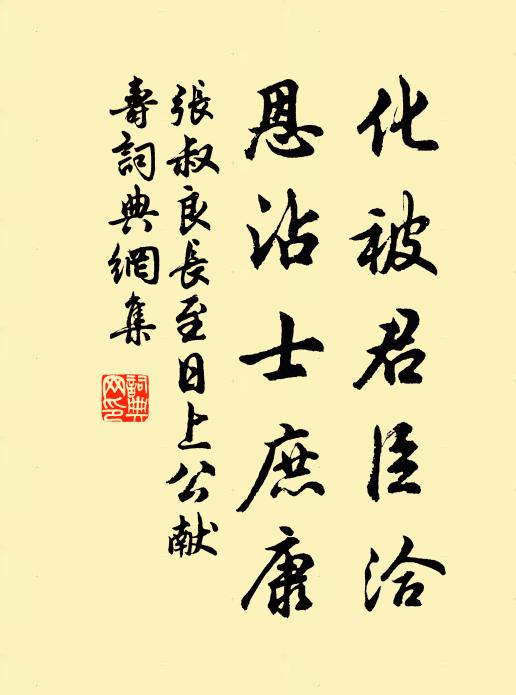 化被君臣洽
恩沾士庶康
張叔良長至日上公献
壽詞典網集
詞典
网印